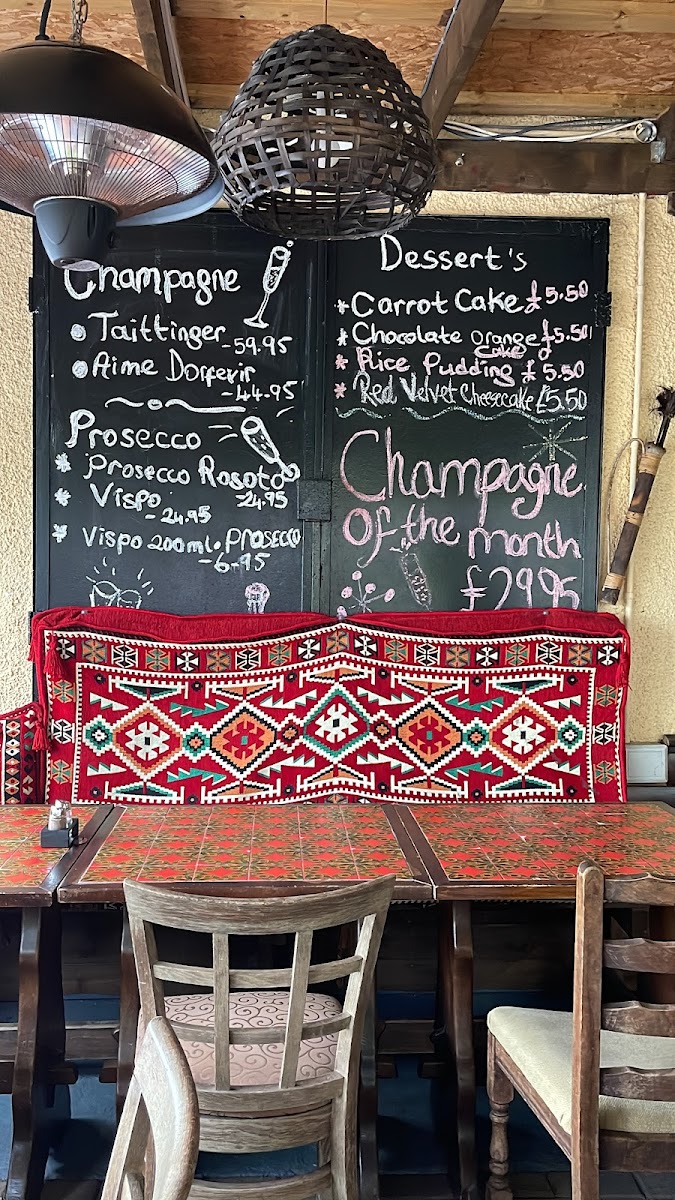 Champagne
Taittinger
- 59.95
Aime Dorfevir
- 44.95
Prosecco
* Prosecco Rosoto
24.95
* Vispo
- 24.95
* Vispo 200ml. Prosecco
- 6.95
Dessert's
* Carrot Cake £5.50
* Chocolate orange £5.50
Cake
* Rice Pudding £5.50
* Red Velvet Cheesecake £5.50
Champagne
of the month
£29.95